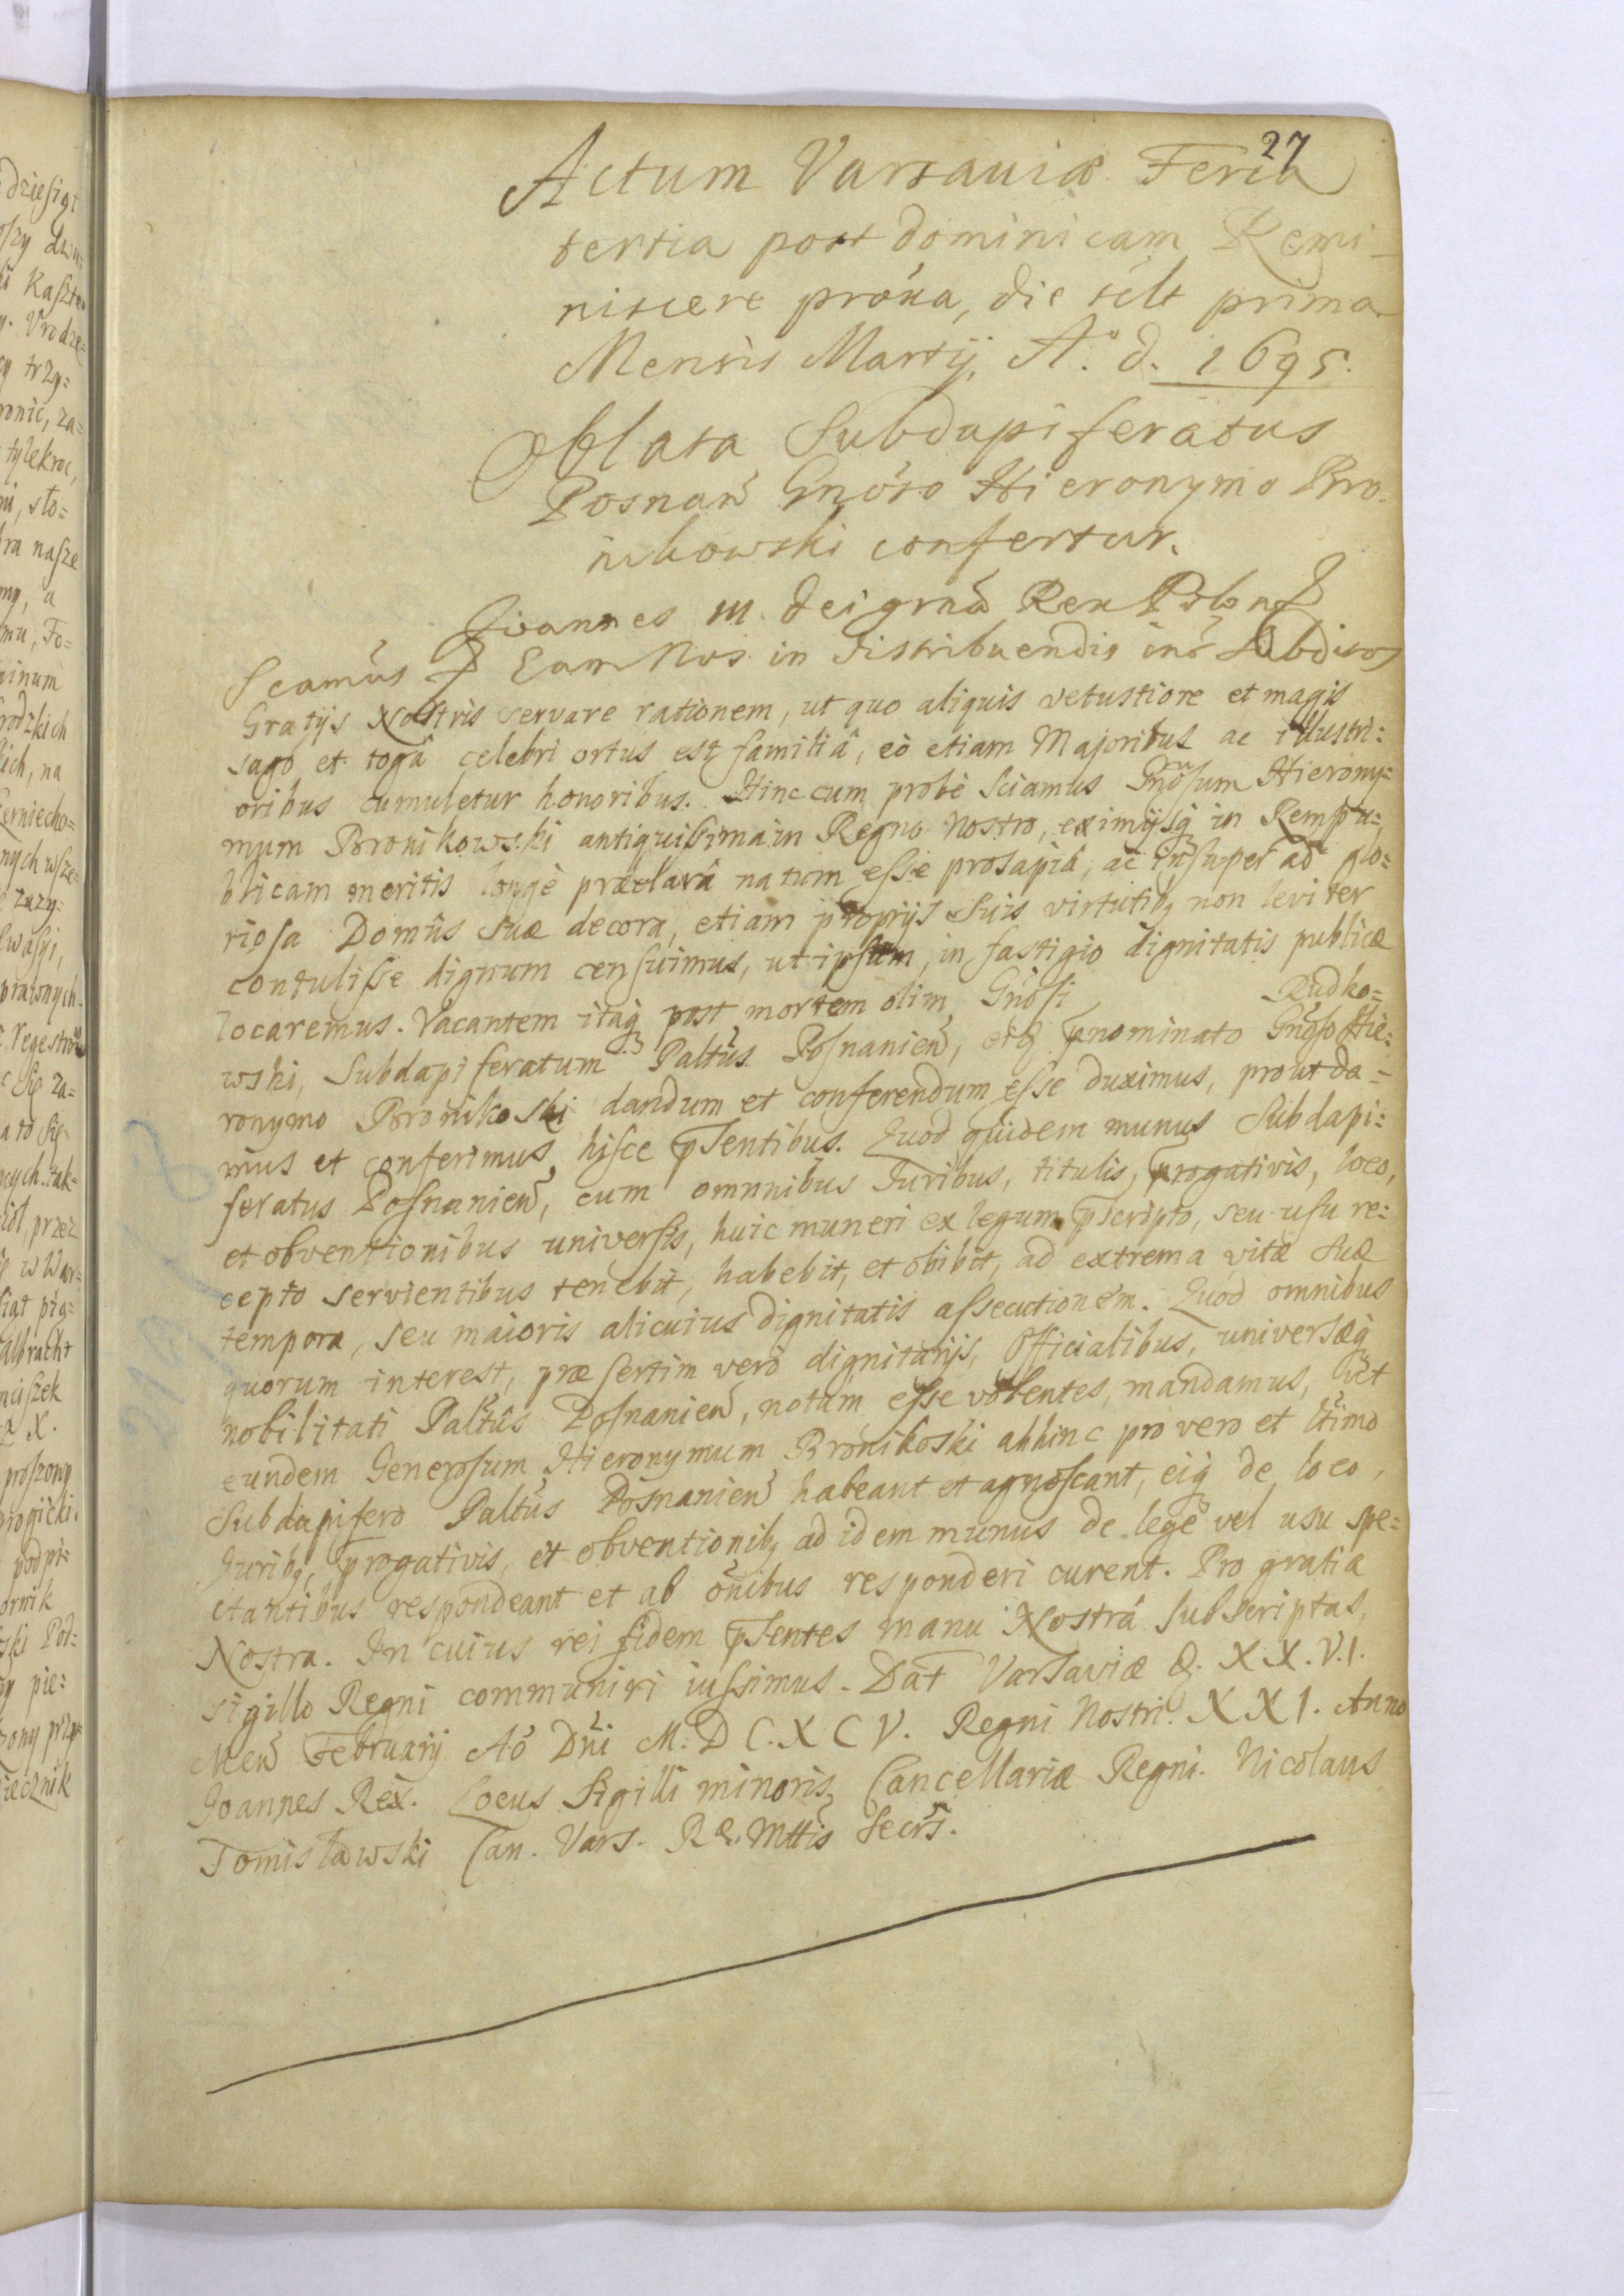 27
Actum Varsaviæ Feria
tertia post dominicam Remi-
niscere proxia, die sclt prima
Mensis Martij, A.° d. 1695.
Oblata Subdapiferatus
Posnan̄ Gnōso Hieronymo Bro-
nikowski confertur.
Joannes III Dei grnā Rex Polon
Eam Nos in distribuendis inr̄ Subditos
Gratijs Nostris servare rationem, ut quo aliquis vetustiore et magis
sago et togâ celebri ortus est familiâ, eò etiam Majoribus ac illustri:
oribus cumuletur honoribus. Hinc cum probè Sciamus Gnōsum Hierony=
mum Bronikowski antiquissima in Regno Nostro, eximijsq; in Rempu=
blicam meritis longè præclarâ natum esse prosapiâ, ac insuper ad glo=
riosa Domûs Suæ decora, etiam proprijs Suis virtutib, non leviter
contulisse dignum censuimus, ut ipsum, in fastigio dignitatis publicæ
locaremus. Vacantem itaq; post mortem olim Gnōsi Rudko=
wski, Subdapiferatum Paltūs Posnanien̄, pnominato Gnōso Hie=
ronymo Bronikoski dandum et conferendum esse duximus, prout da=
mus et conferimus hisce pSentibus. Quod quidem munus Subdapi:
feratus Posnanien̄, cum omnnibus Juribus, titulis, progativis, loco,
et obventionibus universis, huic muneri ex legum pScripto, seu usu re:
cepto servientibus tenebit, habebit, et obibit, ad extrema vitæ Suæ
tempora, seu maioris alicuius dignitatis assecutionem. Quod omnibus
quorum interest, præsertim verò dignitarijs, Officialibus, universæq;
nobilitati Paltûs Posnanien̄, notum esse volentes, mandamus, ut
eundem Generosum Hieronymum Bronikoski abhinc pro vero et ltimo
Subdapifero Paltūs Posnanien̄ habeant et agnoscant, eiq; de loco,
Jurib, progativis, et obventionib, ad idem munus de lege vel usu spe=
ctantibus respondeant et ab ōnibus responderi curent. Pro gratia
Nostra. In cuius rei fidem pSentes manu Nostrá Subscriptas,
sigillo Regni communiri iussimus. Dat Varsaviæ D. XX.V.I.
Men̄ Februarij Aō Dn̄i M.DC.XCV. Regni Nostri XXI. Anno
Joannes Rex. Locus Sigilli minoris Cancellariæ Regni. Nicolaus
Tomisławski Can. Vars. R. Mttis Secrs.